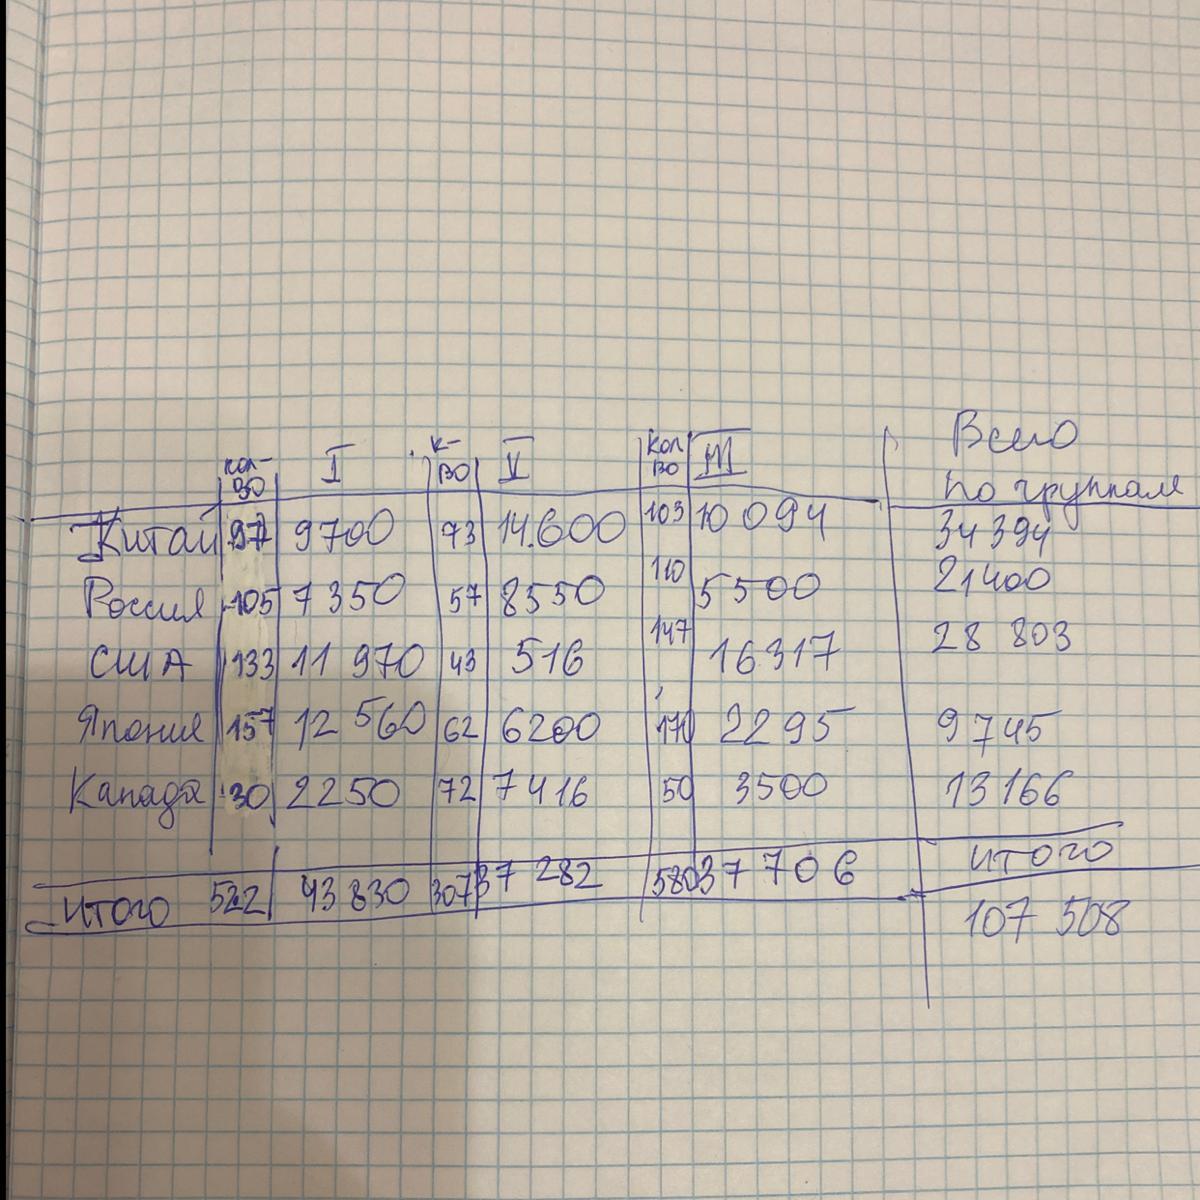 Всего
кол-во I к-во V Кол во III по группам
Китай 97 9700 73 14.600 103 10 094 34 394
Россия 105 7350 57 8550 110 5500 21400
США 133 11 970 43 516 147 16317 28 803
Япония 157 12 560 62 6200 170 2295 9745
Канада 30 2250 72 7416 50 3500 13166
итого
итого 522 43 830 307 37 282 580 37 706
107 508